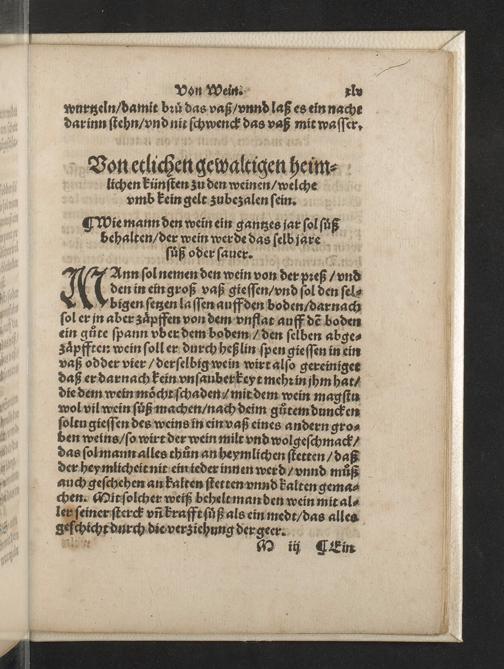 Von Wein. xlv
wurtzeln/damit brü das vaß/vnnd laß es ein nacht
darinn stehn/vnd nit schwenck das vaß mit wasser.
Von etlichen gewaltigen heim-
lichen künsten zu den weinen/welche
vmb kein gelt zubezalen sein.
¶ Wie mann den wein ein gantzes jar sol süß
behalten/der wein werde das selb jare
süß oder sauer.
MAnn sol nemen den wein von der preß/vnd
den in ein groß vaß giessen/vnd sol den sel-
bigen setzen lassen auff den boden/darnach
sol er jn aber zäpffen von dem vnflat auff dē boden
ein gůte spann vber dem bodem/den selben abge-
zäpfften wein soll er durch heßlin spen giessen in ein
vaß odder vier/derselbig wein wirt also gereiniget
daß er darnach kein vnsauberkeyt mehr in jhm hat/
die dem wein möcht schaden/mit dem wein magstu
wol vil wein süß machen/nach deim gůtem duncken
soltu giessen des weins in ein vaß eines andern gro-
ben weins/so wirt der wein milt vnd wolgeschmack/
das sol mann alles thůn an heymlichen stetten/daß
der heymlicheit nit ein ieder innen werd/vnnd můß
auch geschehen an kalten stetten vnnd kalten gema-
chen. Mit solcher weiß behelt man den wein mit al-
ler seiner sterck vñ krafft süß als ein medt/das alles
geschicht durch die verziehung der geer.
M iij ¶ Ein